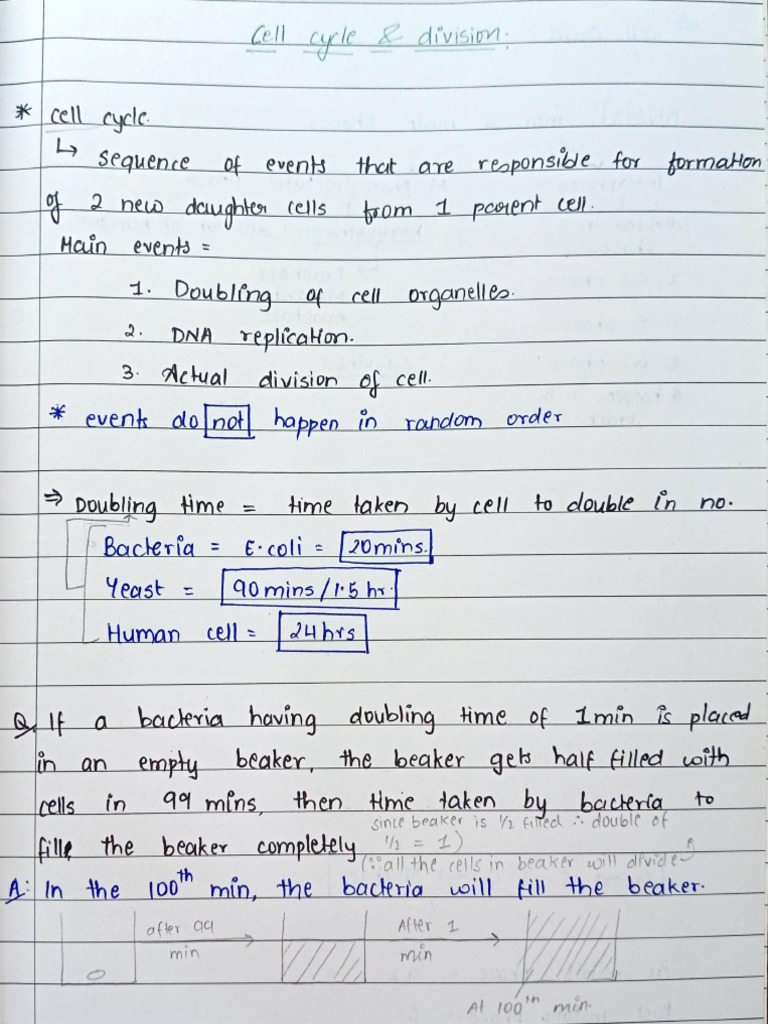 Cell cycle & division.
* cell cycle.
↳ sequence of events that are responsible for formation
of 2 new daughter cells from 1 parent cell.
Main events =
1. Doubling of cell organelles.
2. DNA replication.
3. Actual division of cell.
* events do not happen in random order
⇒ Doubling time = time taken by cell to double in no.
Bacteria = E.coli = 20mins.
Yeast = 90 mins / 1.5 hr.
Human cell = 24 hrs
Q. If a bacteria having doubling time of 1min is placed
in an empty beaker, the beaker gets half filled with
cells in 99 mins, then time taken by bacteria to
since beaker is 1/2 filled ∴ double of
fill the beaker completely 1/2 = 1)
(∵ all the cells in beaker will divide
A: In the 100th min, the bacteria will fill the beaker.
after 99 min
After 1 min
At 100th min.